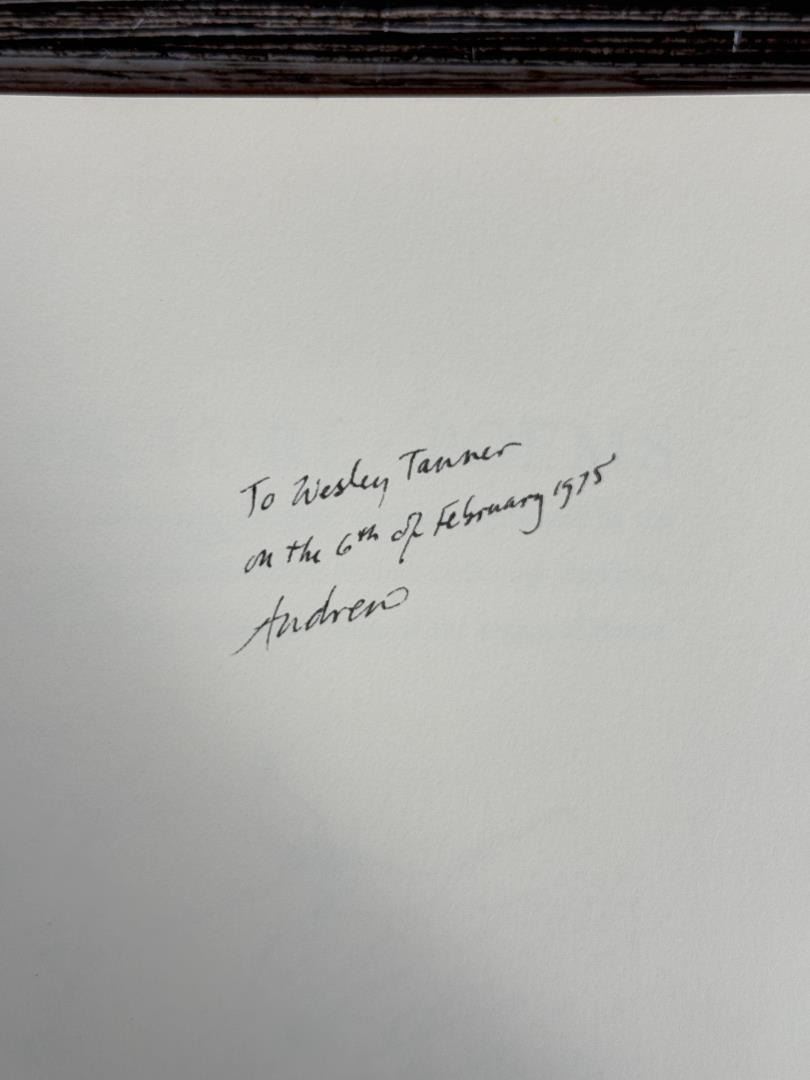 To Wesley Tanner
on the 6th of February 1975
Andrew